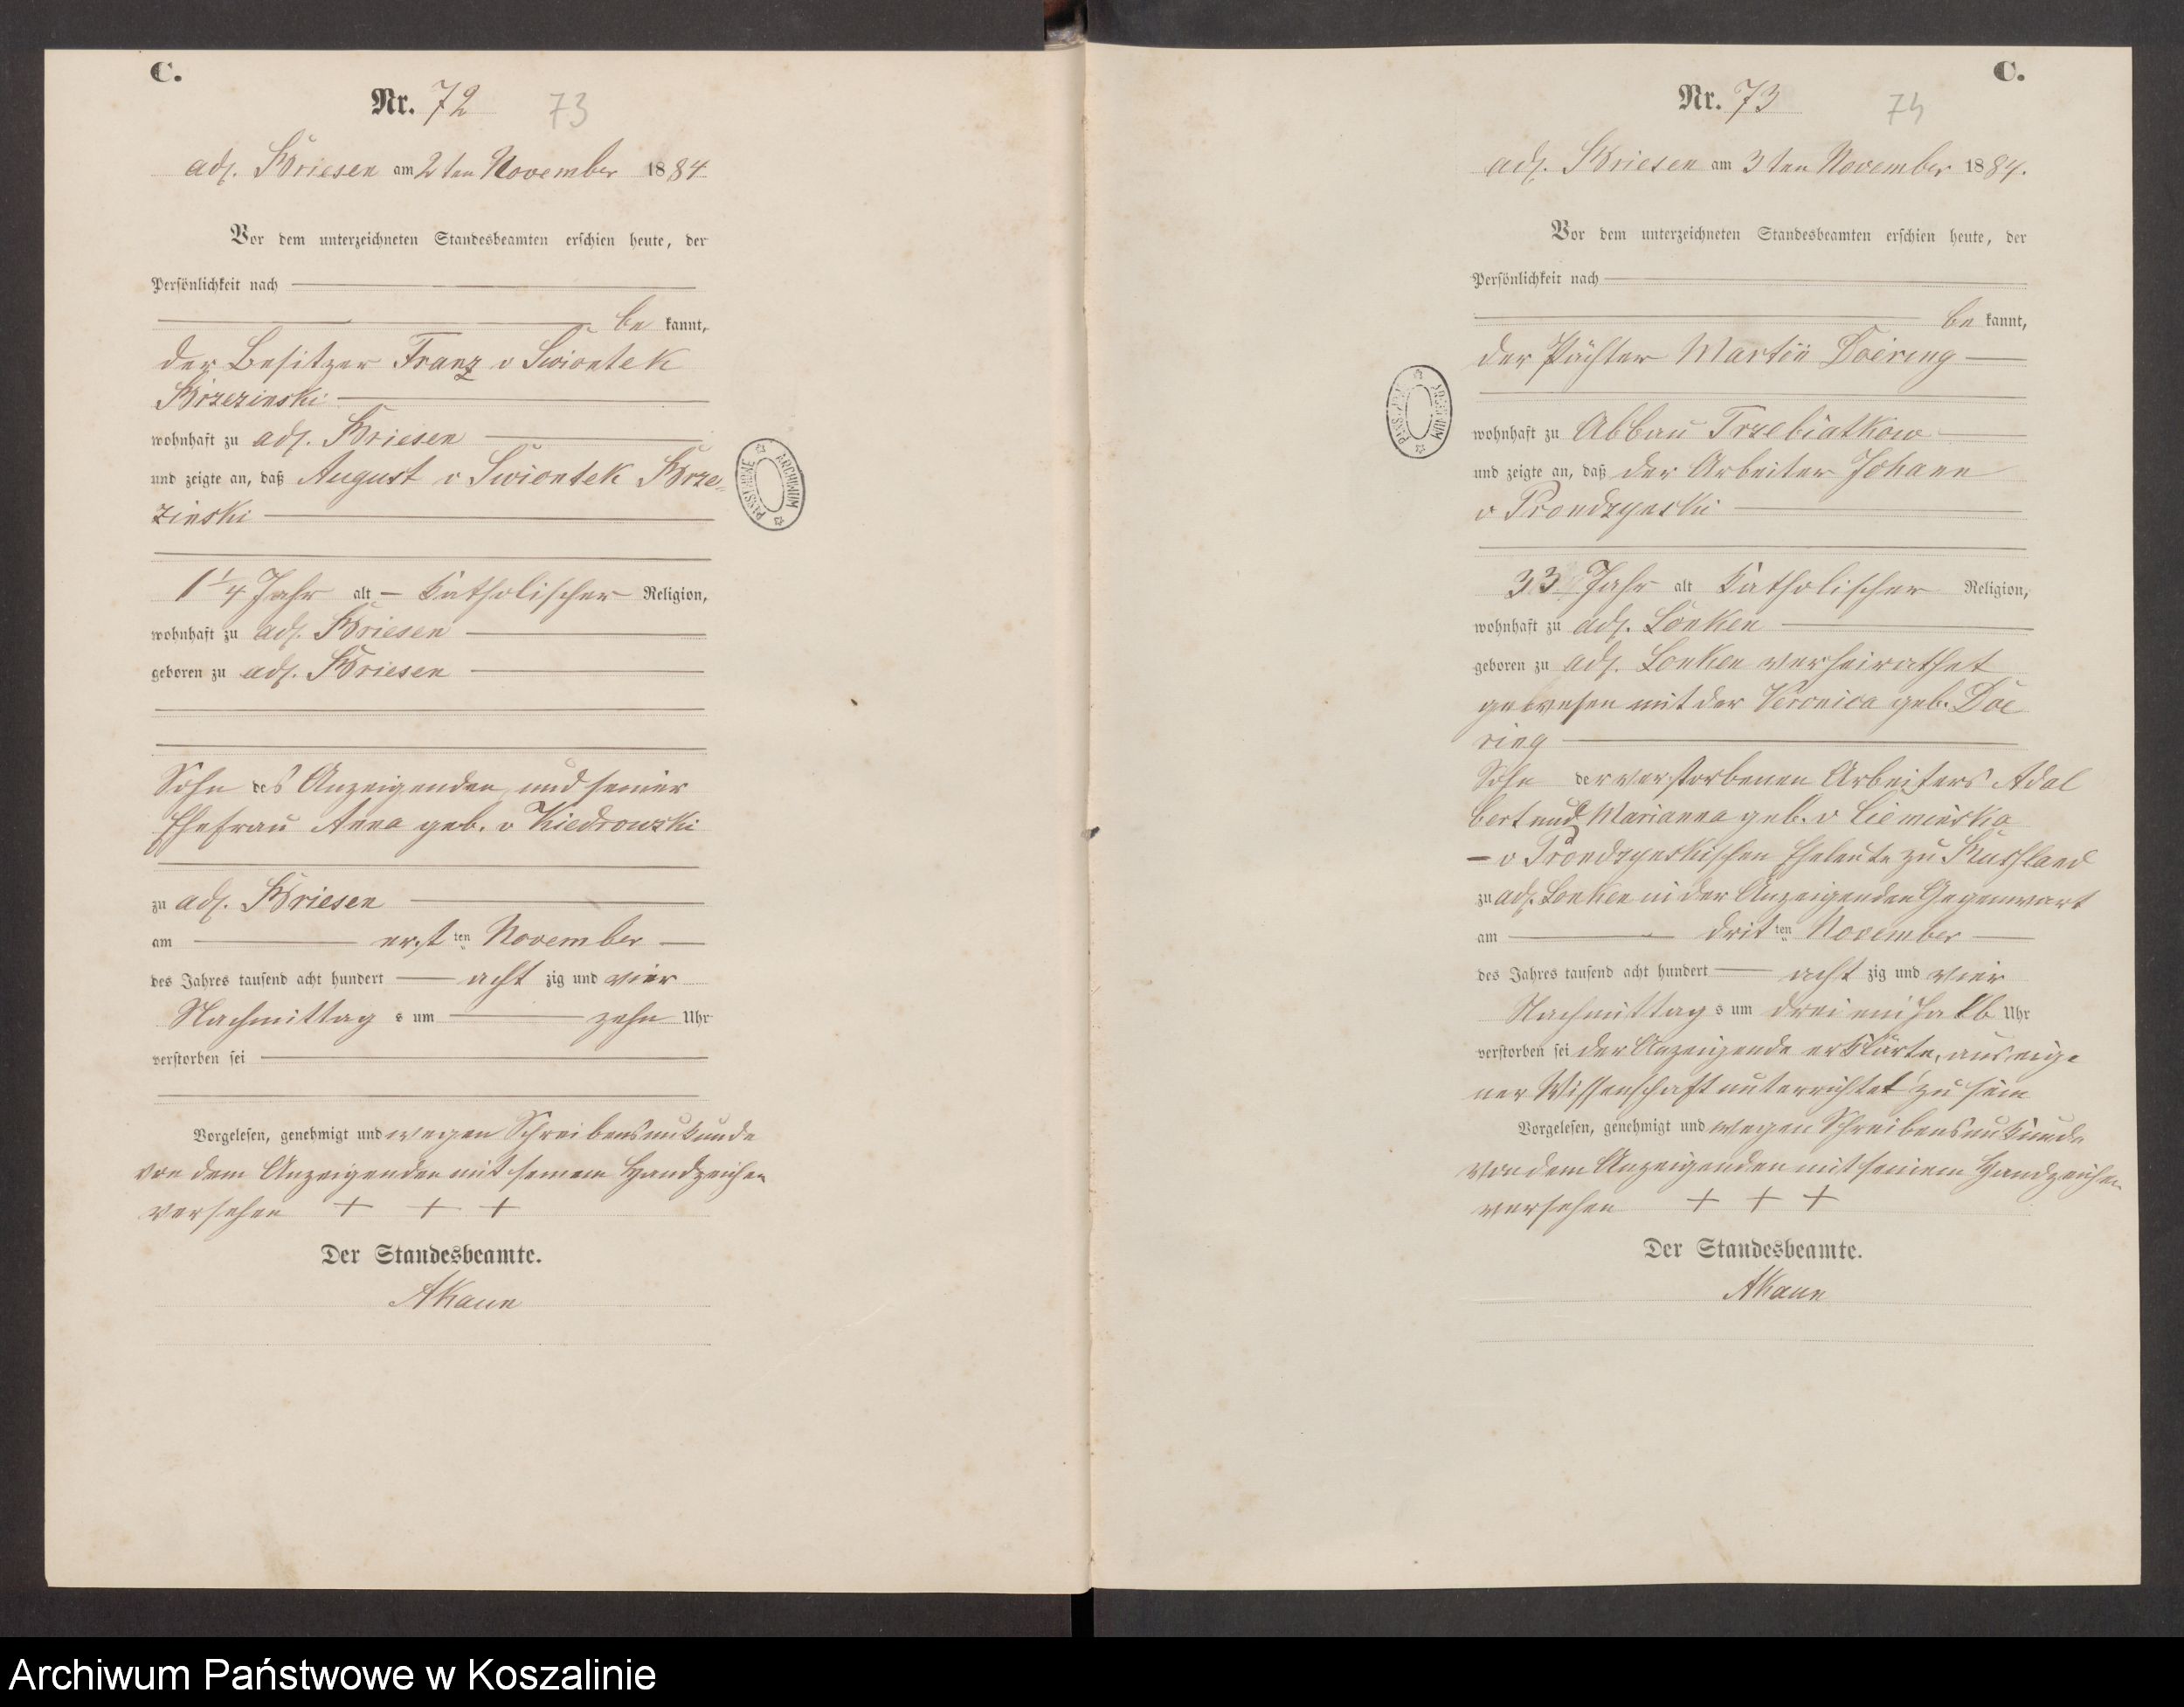 C.
Nr. 72 73
adl. Briesen am 2ten November 1884
Vor dem unterzeichneten Standesbeamten erschien heute, der
Persönlichkeit nach
be kannt,
der Besitzer Franz v Swiontek
Brzezinski
wohnhaft zu adl. Briesen
und zeigte an, daß August v Swiontek Brze-
zinski
1 1/4 Jahr alt – Katholischer Religion,
wohnhaft zu adl. Briesen
geboren zu adl. Briesen
Sohn des Anzeigenden und seiner
Ehefrau Anna geb. v Kiedrowski
zu adl. Briesen
am ersten November
des Jahres tausend acht hundert acht zig und vier
Nachmittag s um zehn Uhr
verstorben sei
Vorgelesen, genehmigt und wegen Schreibensunkunde
von dem Anzeigenden mit seinem Handzeichen
versehen + + +
Der Standesbeamte.
AKaun
ARCHIWUM PAŃSTWOWE
C.
Nr. 73 74
adl. Briesen am 3ten November 1884.
Vor dem unterzeichneten Standesbeamten erschien heute, der
Persönlichkeit nach
be kannt,
der Pächter Martin Doering
wohnhaft zu Abbau Trzebiatkow
und zeigte an, daß der Arbeiter Johann
v Prondzynski
33 Jahr alt Katholischer Religion,
wohnhaft zu adl. Lonken
geboren zu adl. Lonken verheirathet
gewesen mit der Veronica geb. Doe
ring
Sohn der verstorbenen Arbeiters Adal
bert und Marianna geb. v Ciemińska
– v Prondzynskischen Eheleute zu Russland
zu adl. Lonken in der Anzeigenden Gegenwart
am dritten November
des Jahres tausend acht hundert acht zig und vier
Nachmittag s um drei einhalb Uhr
verstorben sei der Anzeigende erklärte, aus eige
ner Wissenschaft unterrichtet zu sein
Vorgelesen, genehmigt und wegen Schreibensunkunde
von dem Anzeigenden mit seinem Handzeichen
versehen + + +
Der Standesbeamte.
AKaun
ARCHIWUM PAŃSTWOWE
Archiwum Państwowe w Koszalinie